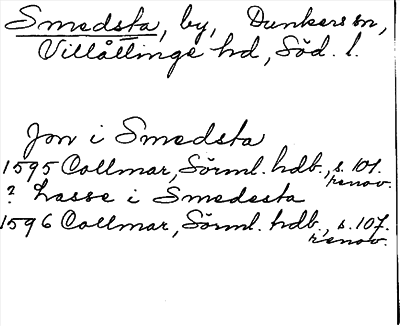 Smedsta, by, Dunkers sn,
Villåttinge hd, Söd. l.
Jon i Smedsta
1595 Collmar, Sörml. hdb., s. 101.
renov.
? Lasse i Smedesta
1596 Collmar, Sörml. hdb., s. 107.
renov.